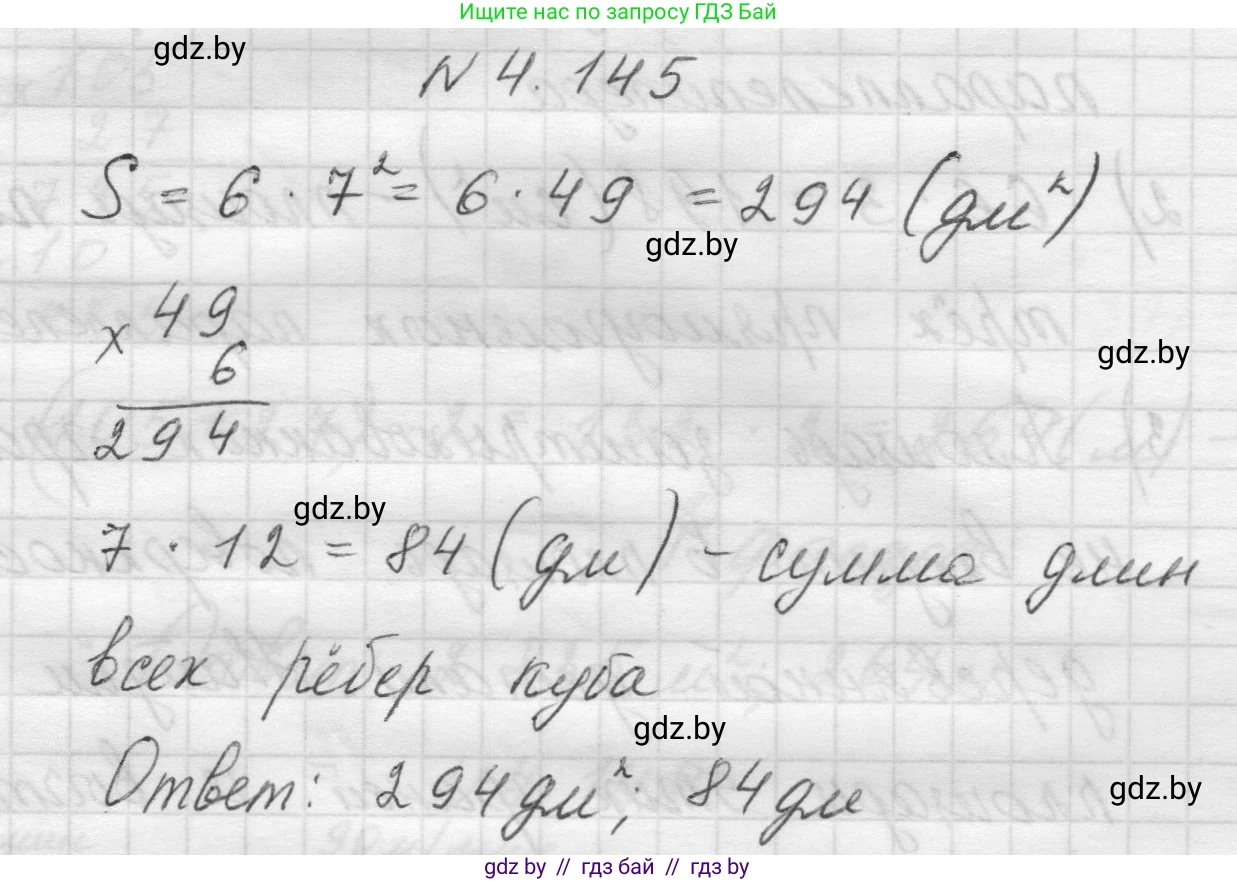 Ищите нас по запросу ГДЗ Бай
gdz.by
N 4.145
S = 6 · 7² = 6 · 49 = 294 (дм²)
gdz.by
× 49
6
294
gdz.by
gdz.by
7 · 12 = 84 (дм) - сумма длин
всех рёбер куба
gdz.by
Ответ: 294 дм²; 84 дм
gdz.by
gdz by // гдз бай // гдз by